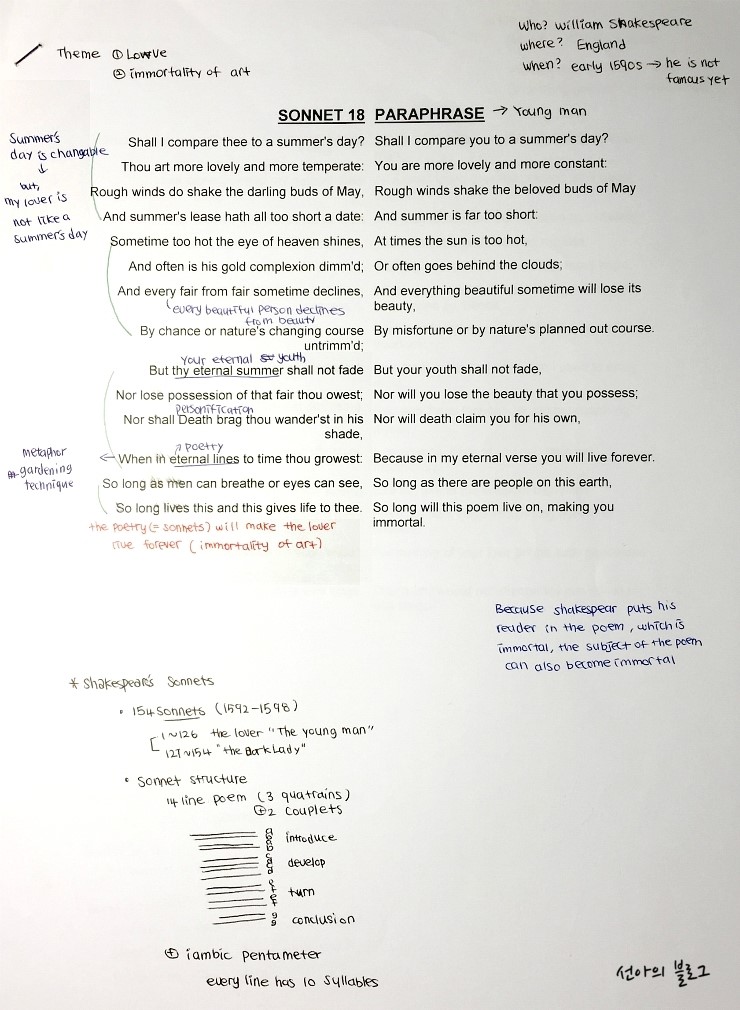 Who? William Shakespeare
where? England
when? early 1590s → he is not
famous yet
Theme ① Love
② immortality of art
SONNET 18 PARAPHRASE → Young man
Summer's
day is changable
↓
but,
my lover is
not like a
summer's day
Shall I compare thee to a summer's day? Shall I compare you to a summer's day?
Thou art more lovely and more temperate: You are more lovely and more constant:
Rough winds do shake the darling buds of May, Rough winds shake the beloved buds of May
And summer's lease hath all too short a date: And summer is far too short:
Sometime too hot the eye of heaven shines, At times the sun is too hot,
And often is his gold complexion dimm'd; Or often goes behind the clouds;
And every fair from fair sometime declines, And everything beautiful sometime will lose its
beauty,
every beautiful person declines
from beauty
By chance or nature's changing course By misfortune or by nature's planned out course.
untrimm'd;
your eternal youth
But thy eternal summer shall not fade But your youth shall not fade,
Nor lose possession of that fair thou owest; Nor will you lose the beauty that you possess;
personification
Nor shall Death brag thou wander'st in his Nor will death claim you for his own,
shade,
↗ poetry
When in eternal lines to time thou growest: Because in my eternal verse you will live forever.
metaphor
gardening
technique
So long as men can breathe or eyes can see, So long as there are people on this earth,
So long lives this and this gives life to thee. So long will this poem live on, making you
immortal.
the poetry (= sonnets) will make the lover
live forever (immortality of art)
Because shakespear puts his
reader in the poem, which is
immortal, the subject of the poem
can also become immortal
* Shakespear's Sonnets
• 154 Sonnets (1592-1598)
1~126 the lover "The young man"
127~154 "the Dark Lady"
• Sonnet structure
14 line poem (3 quatrains)
⊕ 2 couplets
a
b
a
b
introduce
c
d
c
d
develop
e
f
e
f
turn
g
g
conclusion
⊕ iambic pentameter
every line has 10 syllables
선아의 블로그